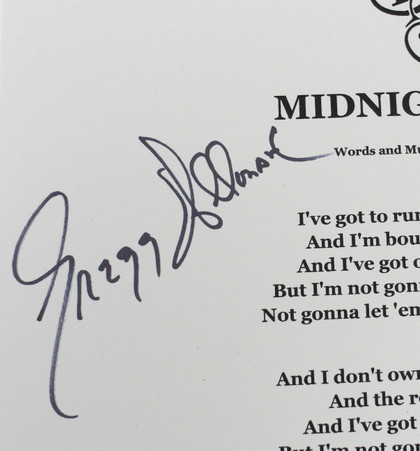 MIDNIG
Words and Mu
Gregg Allman
I've got to run
And I'm bou
And I've got o
But I'm not gon
Not gonna let 'em
And I don't own
And the r
And I've got
But I'm not gon